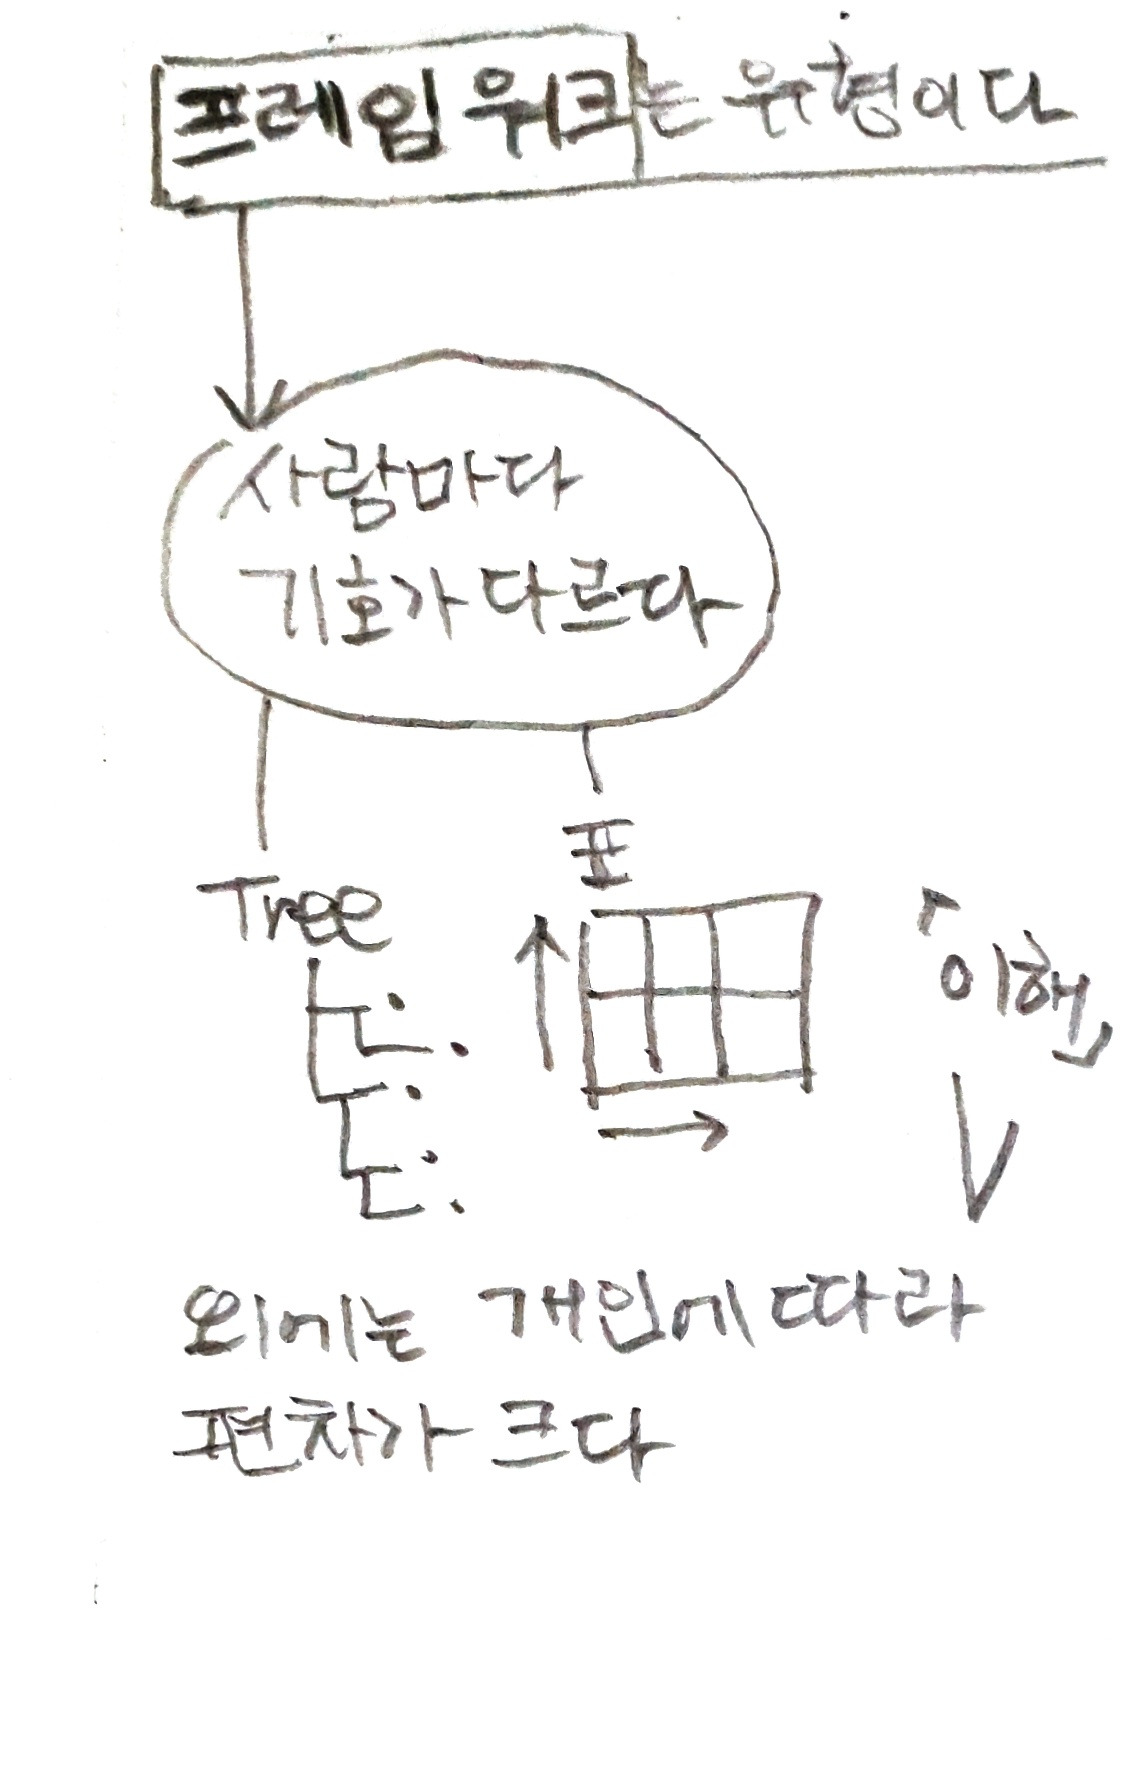 프레임워크는 유형이다
사람마다
기호가 다르다
Tree
표
「이해」
외에는 개인에 따라
편차가 크다